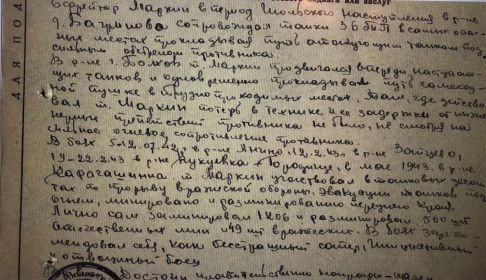 Ефрейтор Маркин в период Июльского наступления в р-не
д. Вагринова сопровождал танки 36 в самых опас-
ных местах прокладывая путь атакующим танкам под
сильным обстрелом противника.
В р-не г. Болхов т. Маркин продвигался впереди наступаю-
щих танков и одновременно прокладывал путь самоход-
ной пушке в труднопроходимых местах. Там, где действо-
вал т. Маркин потерь в технике и ее задержки от инже-
нерных препятствий противника не было, не смотря на
сильное огневое сопротивление противника.
В боях 5-12.07.42 г. в р-не 12.2.43 г. в р-не Зайцево,
19-22.2.43 в р-не в мае 1943 в р-не
т. Маркин участвовал в танковых десан-
тах по прорыву вражеской обороны. Эвакуации танков под
огнем, минировано и разминированию переднего края.
Лично сам заминировал 1206 и разминировал 560 шт
отечественных мин 49 шт вражеских. В боях заре-
комендовал себя, как бесстрашный сапер, инициативный
отважный боец.
Достоин правительственно награды
ДЛЯ ПОД